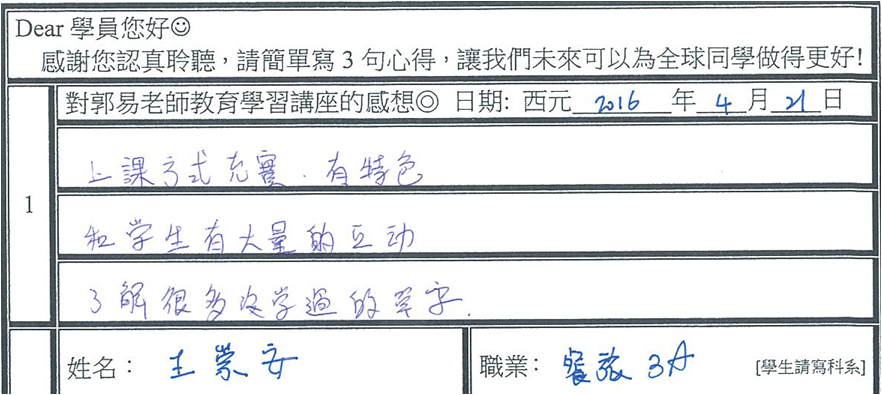 Dear 學員您好☺
感謝您認真聆聽，請簡單寫 3 句心得，讓我們未來可以為全球同學做得更好!
對郭易老師教育學習講座的感想◎ 日期: 西元 2016 年 4 月 21 日
1
上課方式充實、有特色
和学生有大量的互动
了解很多沒学過的單字.
姓名： 王崇安
職業： 餐旅 3A [學生請寫科系]